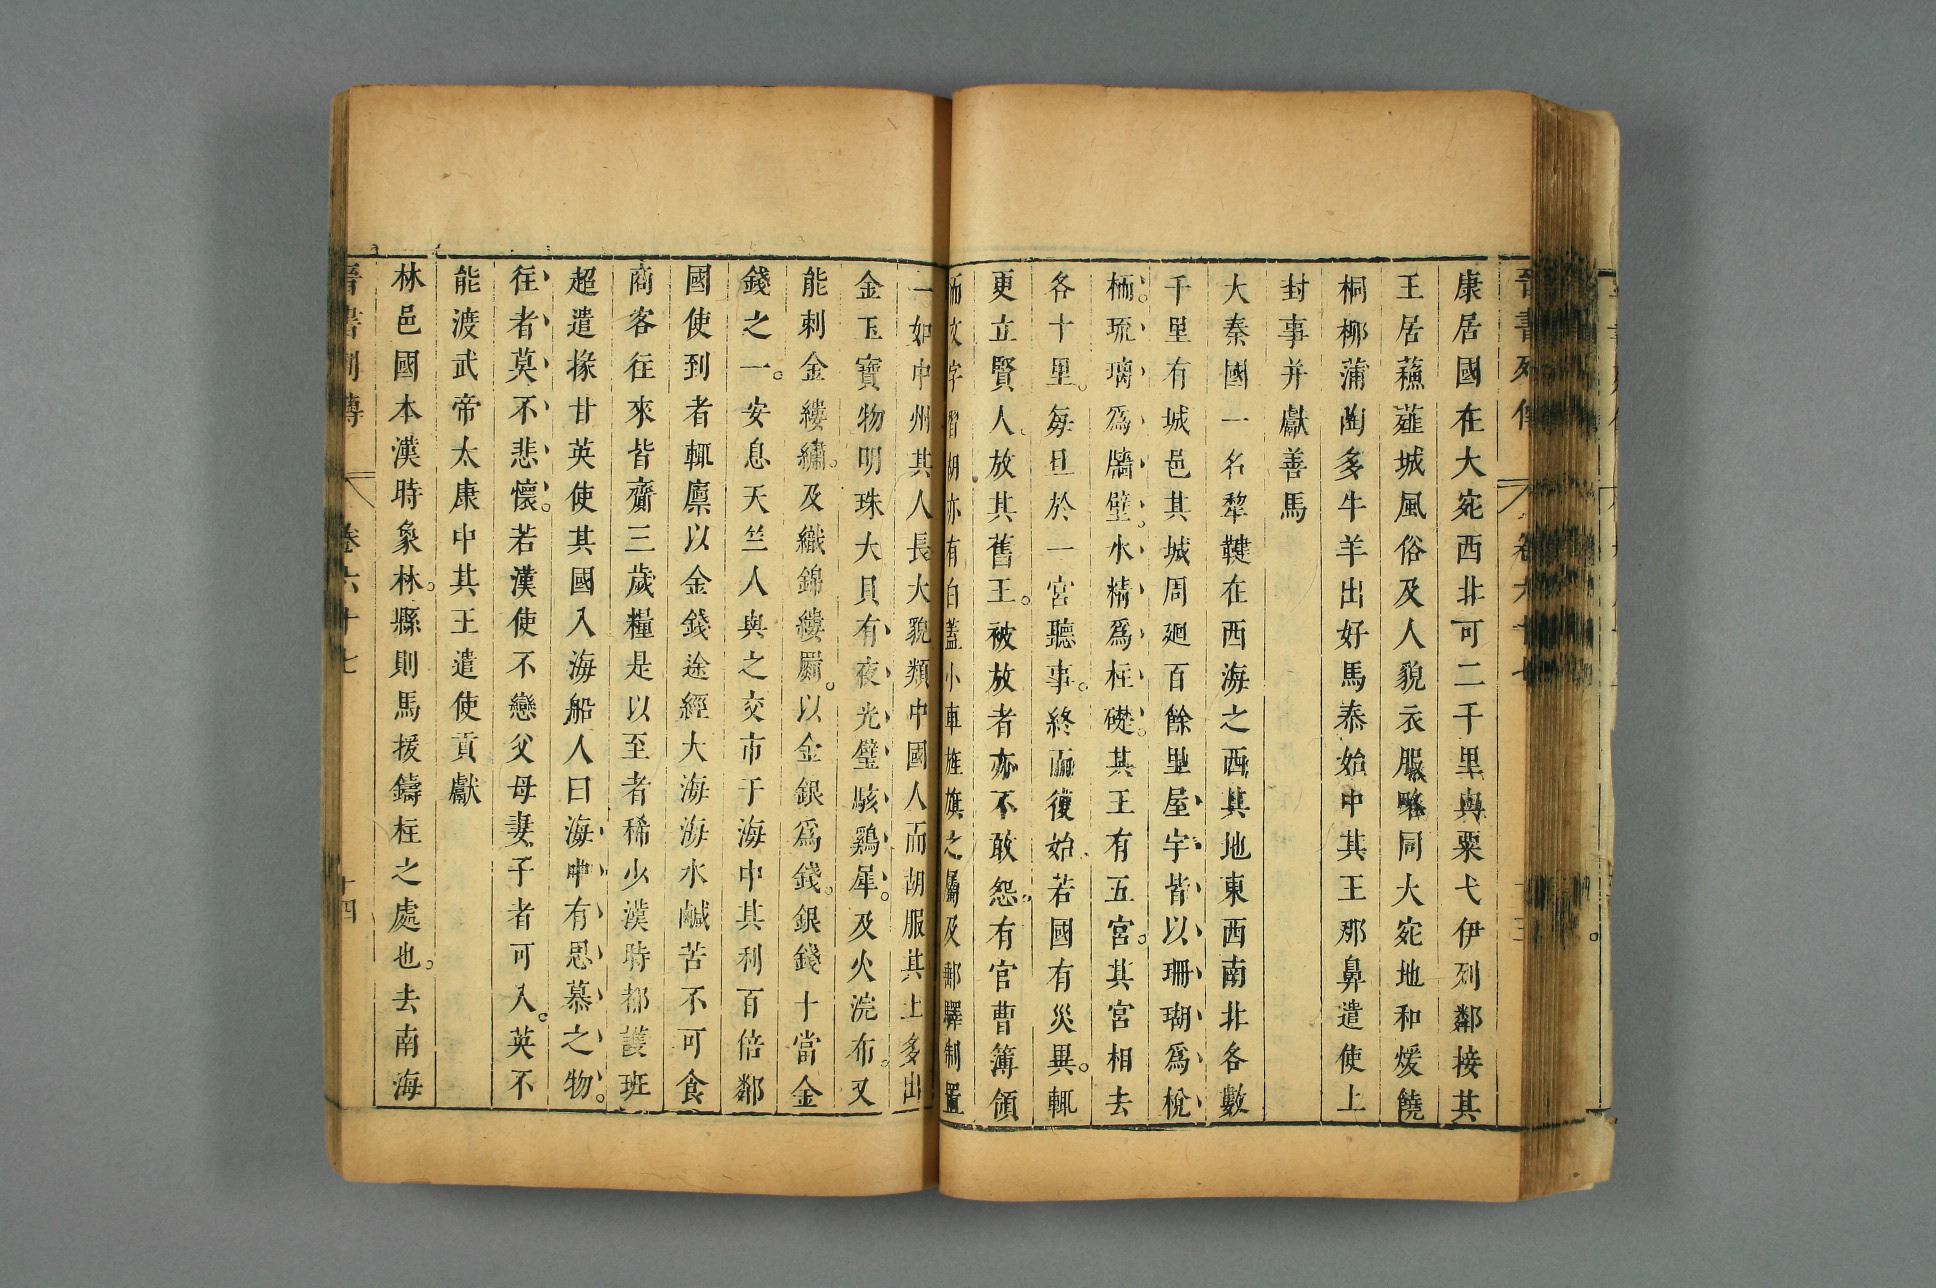 康居國在大宛西北可二千里與粟弋伊列鄰接其
王居蘓薤城風俗及人貌衣服略同大宛地和煖饒
桐柳蒲陶多牛羊出好馬泰始中其王那鼻遣使上
封事并獻善馬
大秦國一名犂鞬在西海之西其地東西南北各數
千里有城邑其城周廻百餘里屋宇皆以珊瑚爲梲
栭琉璃爲牆壁水精爲柱礎其王有五宮其宮相去
各十里每旦於一宮聽事終而復始若國有災異輒
更立賢人放其舊王被放者亦不敢怨有官曹簿領
而文字習胡亦有白蓋小車旌旗之屬及郵驛制置
一如中州其人長大貌類中國人而胡服其土多出
金玉寶物明珠大貝有夜光璧駭鷄犀及火浣布又
能刺金縷繡及織錦縷罽以金銀爲錢銀錢十當金
錢之一安息天竺人與之交市于海中其利百倍鄰
國使到者輒廩以金錢途經大海海水鹹苦不可食
商客往來皆齎三歲糧是以至者稀少漢時都護班
超遣掾甘英使其國入海船人曰海中有思慕之物
往者莫不悲懷若漢使不戀父母妻子者可入英不
能渡武帝太康中其王遣使貢獻
林邑國本漢時象林縣則馬援鑄柱之處也去南海
晋書列傳 卷六十七 十四